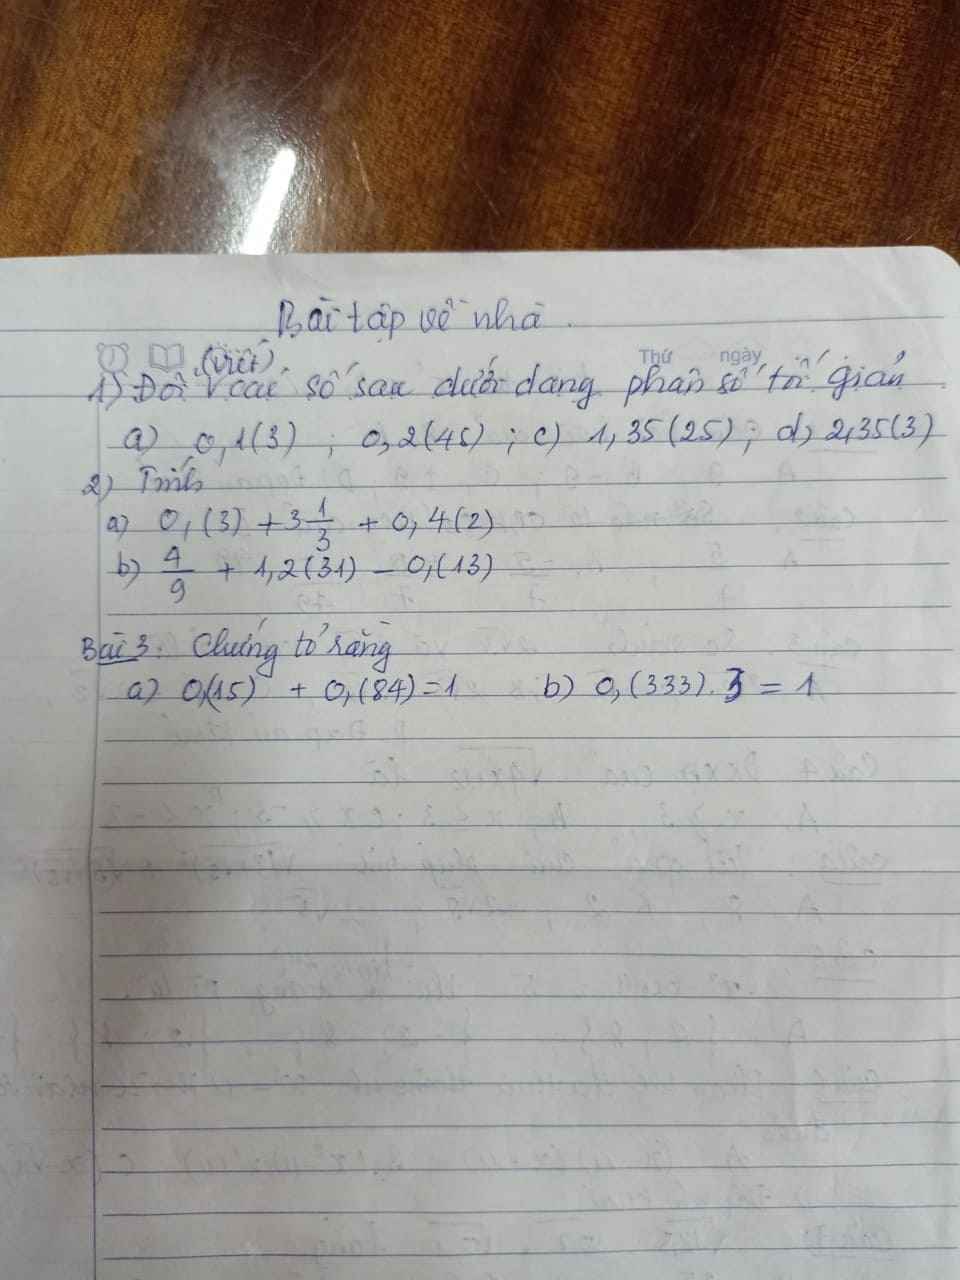 Bài tập về nhà.
(viết)
Thứ ngày
1) Đổi các số sau dưới dạng phân số tối giản
a) 0,1(3) ; 0,2(45) ; c) 1,35(25) ; d) 2,35(3)
2) Tính
a) 0,(3) + 3 1/3 + 0,4(2)
b) 4/9 + 1,2(31) - 0,(13)
Bài 3: Chứng tỏ rằng
a) 0,(15) + 0,(84) = 1 b) 0,(333).3 = 1